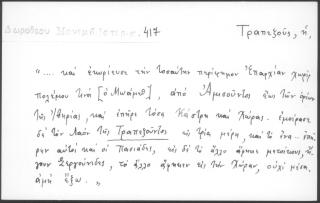 Δωροθέου Μονεμβασίας σ. 417
Τραπεζοῦς, ἡ,
".... καὶ ἐκυρίευσε τὴν τοσαύτην περίφημον Ἐπαρχίαν χωρὶς
πολέμου τινὰ [ὁ Μωάμεθ], ἀπὸ Ἀμισοῦντος ἕως τῶν ὁρίων
τῆς Ἰβηρίας, καὶ ἐπῆρε τόσα Κάστρη καὶ Χώρας. ἐμοίρασε
δὲ τὸν Λαὸν τῆς Τραπεζοῦντος εἰς τρία μέρη, καὶ τὸ ἕνα
αὐτοὶ καὶ οἱ εἰς δὲ τὸ ἄλλο ἀφῆκε
τὸ ἄλλο ἀφῆκεν εἰς τὴν Χώραν, οὐχὶ μέσα,
ἀμὴ ἔξω. "